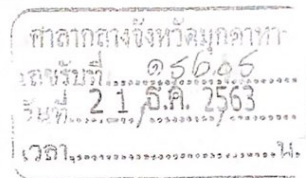 ศาลากลางจังหวัดมุกดาหา
เลขรับที่
วันที่ 2 1 ธ.ค. 2563
เวลา น.